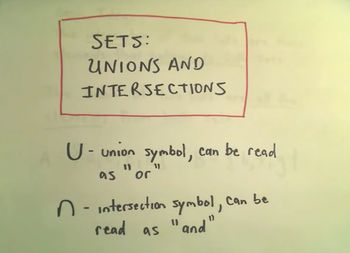 SETS:
UNIONS AND
INTERSECTIONS
U - union symbol, can be read
as "or"
∩ - intersection symbol, can be
read as "and"